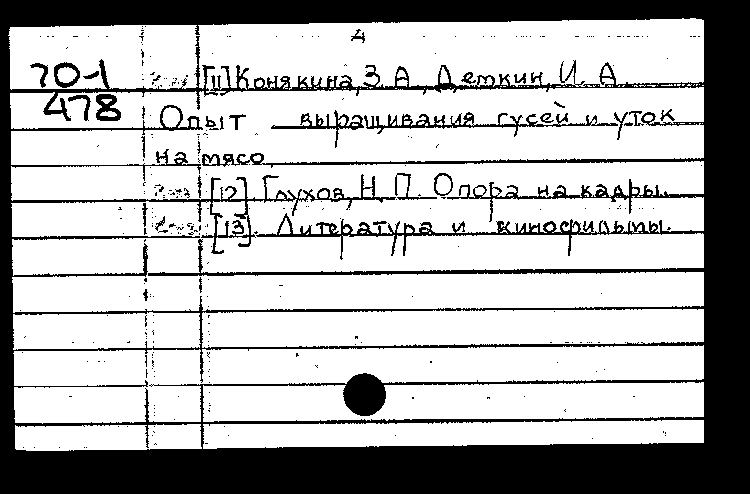 4
70-1
478
[11] Конякина, З. А., Деткин, И. А.
Опыт выращивания гусей и уток
на мясо.
[12] Глухов, Н. П. Опора на кадры.
[13]. Литература и кинофильмы.